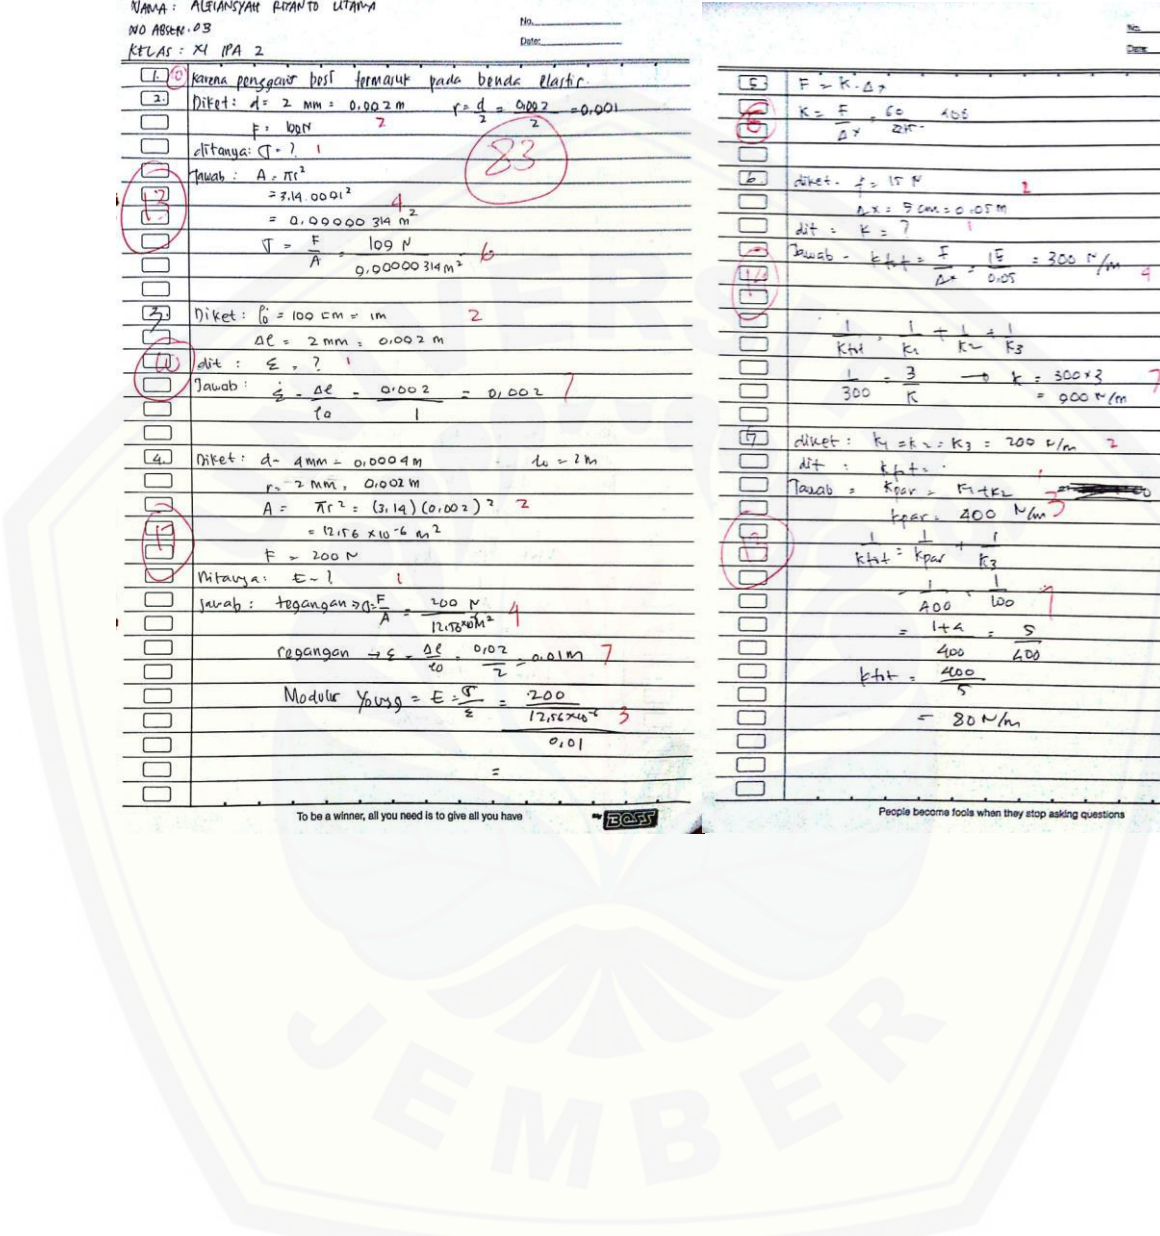 NAMA : ALFIANSYAH RIYANTO UTAMA
NO ABSEN. 03
KELAS : XI IPA 2
No.
Date:
1. Karena penggaris besi termasuk pada benda elastis.
2. Diket: d = 2 mm = 0.002 m r = d/2 = 0,002/2 = 0,001
F = 100N 2
ditanya: σ = ? 1
83
Jawab : A = πr²
= 3.14. 0.001² 4
13
= 0.00000 314 m²
σ = F/A = 100 N/0,00000 314 m² 6
3. Diket : l₀ = 100 cm = 1m 2
Δl = 2 mm = 0.002 m
10
dit : ε = ? 1
Jawab : ε = Δl/l₀ = 0.002/1 = 0,002 7
4. Diket : d = 4mm = 0,0004m l₀ = 2m
r = 2 mm, 0,002 m
A = πr² = (3,14) (0,002)² 2
= 12,56 x10⁻⁶ m²
17
F = 200 N
Ditanya : E = ? 1
Jawab : tegangan → σ = F/A = 200 N/12,56x10⁻⁶m² 4
regangan → ε = Δl/l₀ = 0,02/2 = 0.01m 7
Modulus Young = E = σ/ε = 200/12,56x10⁻⁶ 3
0,01
=
To be a winner, all you need is to give all you have
BOSS
No.
Date
5. F = K . Δx
K = F/Δx = 60
6. diket. f = 15 N 2
Δx = 5 cm = 0.05m
dit = K = ? 1
Jawab - ktot = F/Δx = 15/0.05 = 300 N/m 4
1/Ktot = 1/K1 + 1/K2 + 1/K3
1/300 = 3/K → k = 300x3 7
= 900 N/m
7 diket : k1 = k2 = K3 = 200 N/m 2
dit : ktot = 1
Jawab = Kpar = K1+K2 3
kpar = 400 N/m
1/ktot = 1/kpar + 1/K3
1/400 1/100 7
= 1+4/400 = 5/400
ktot = 400/5
= 80 N/m
People become fools when they stop asking questions
UNIVERSIT
JEMBER